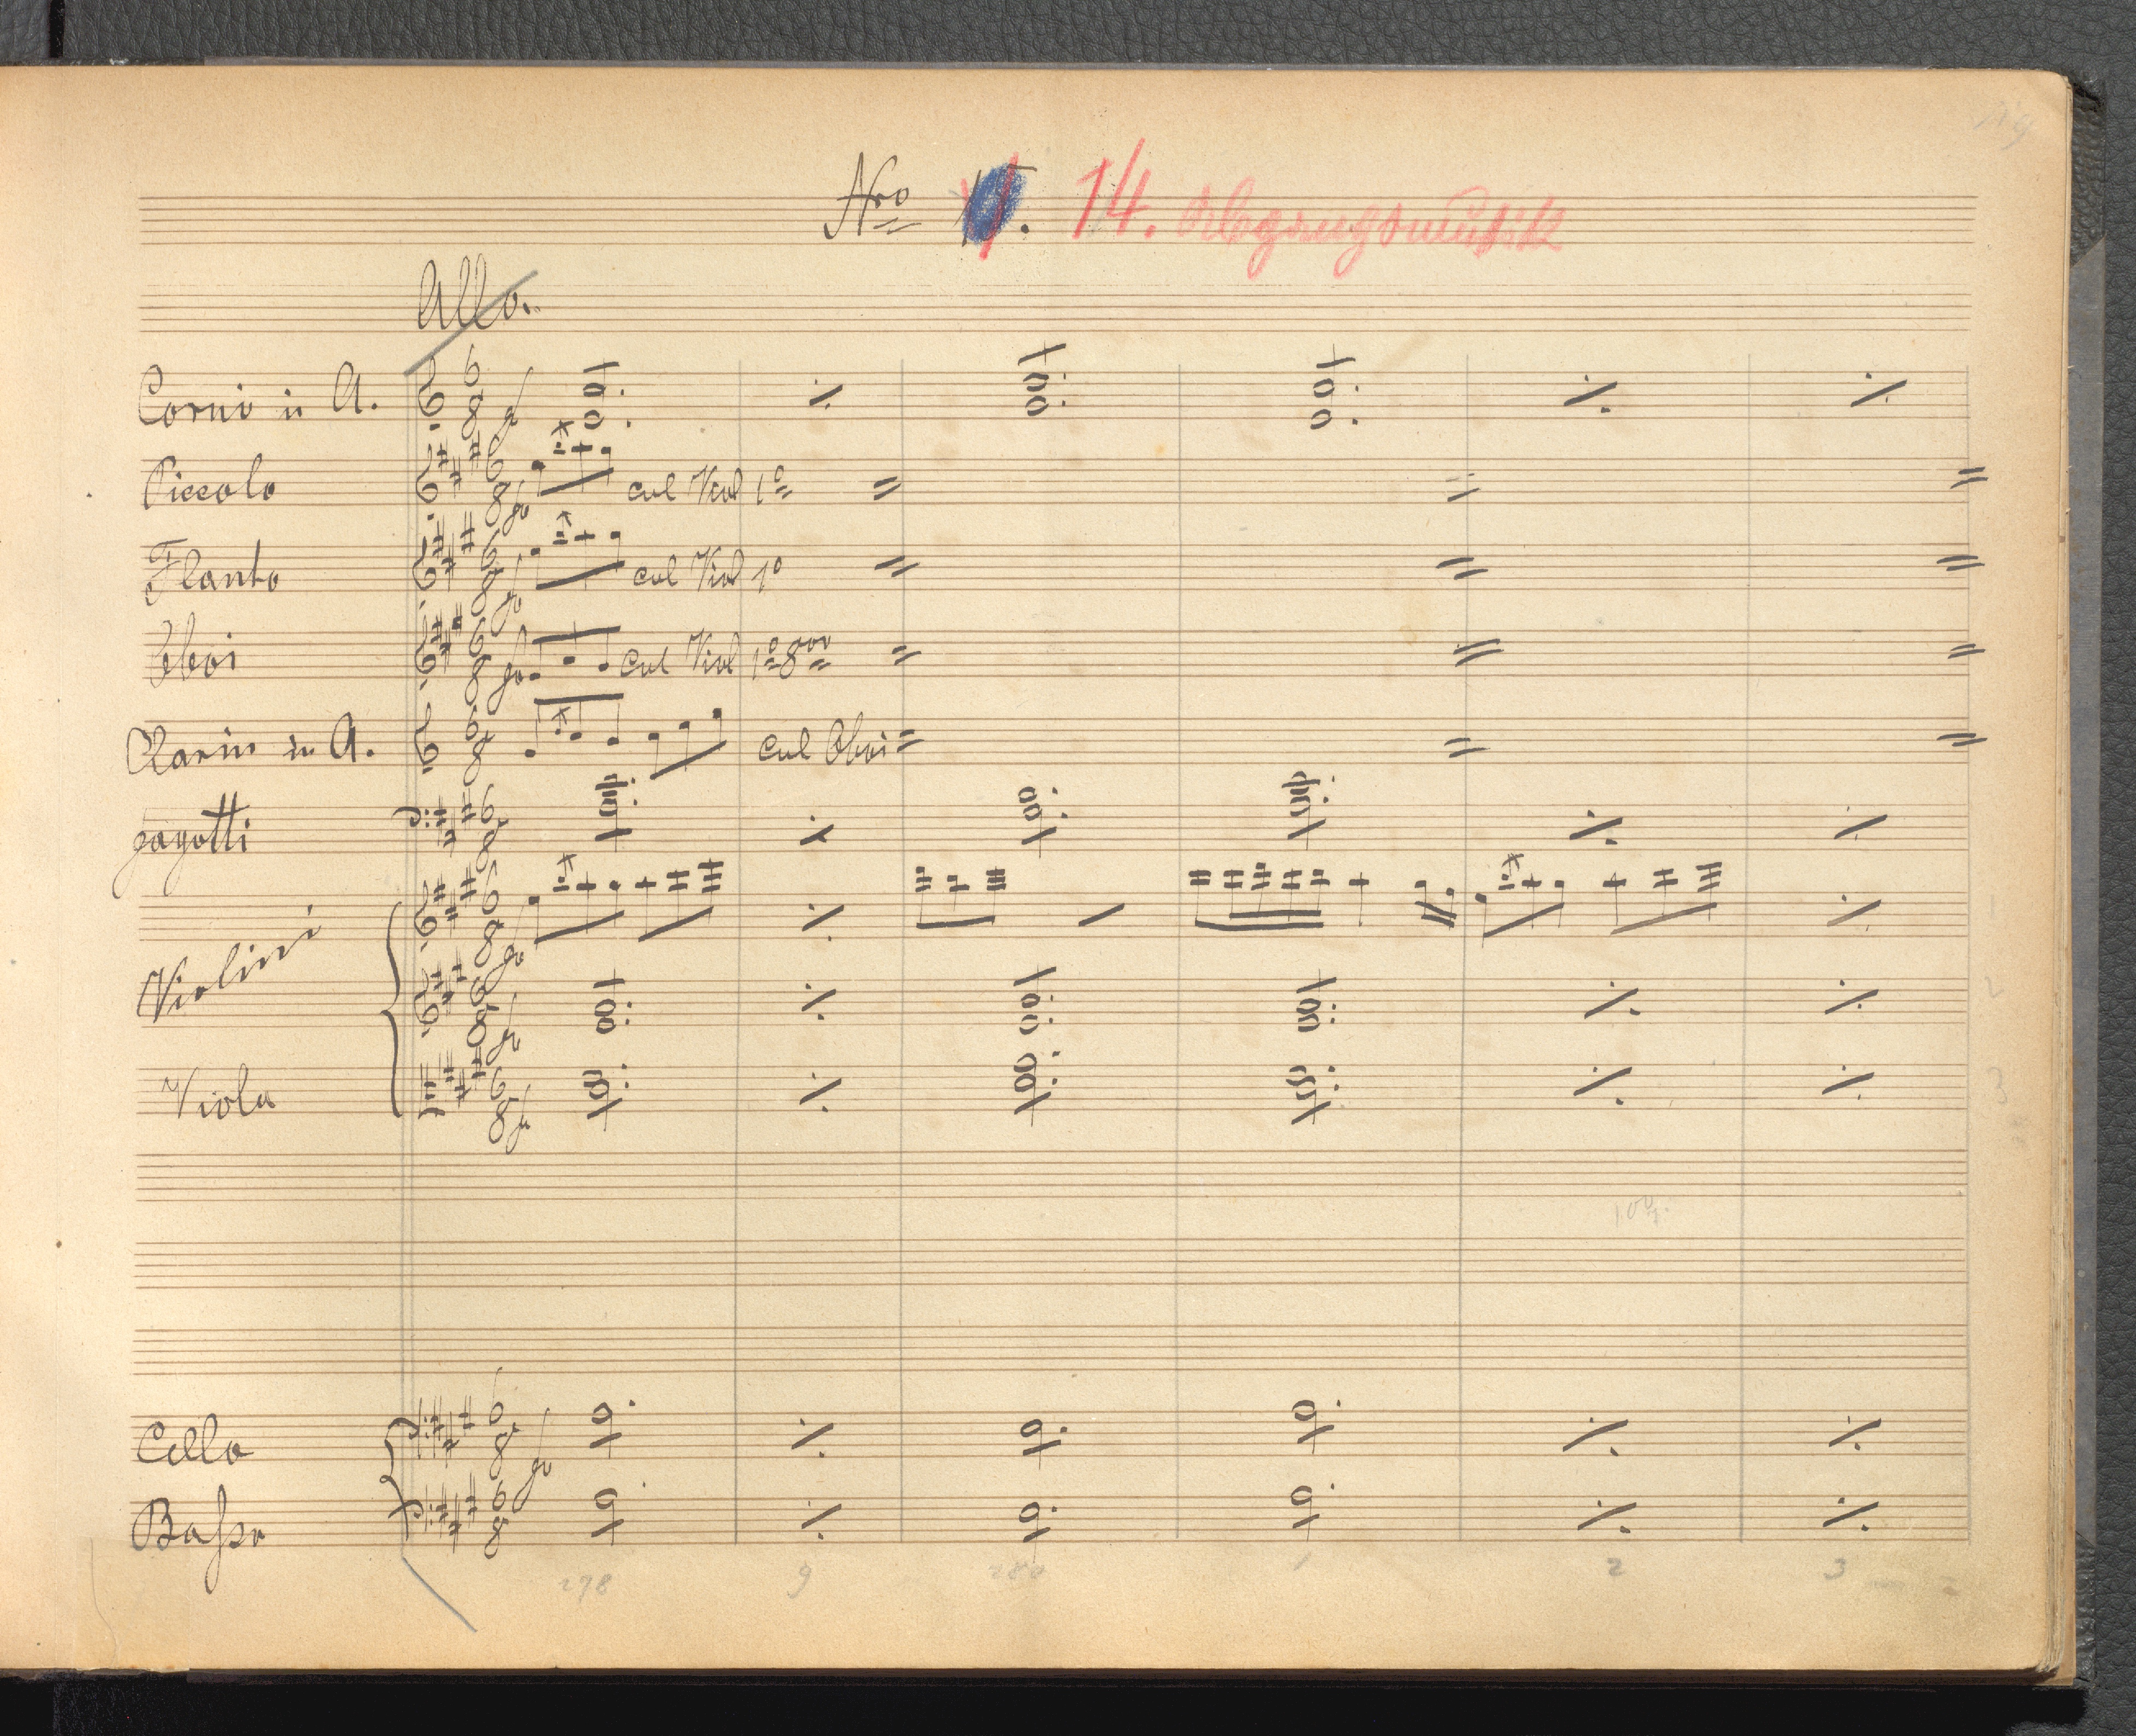 Nro 14. Abgangsmusik
Allo.
Corni in A.
Piccolo col Viol 1o
Flauto col Viol 1o
Oboi col Viol 1o 8va
Clarin in A. col Oboi
fagotti
Violini
Viola
Cello
Basso
278 9 280 1 2 3